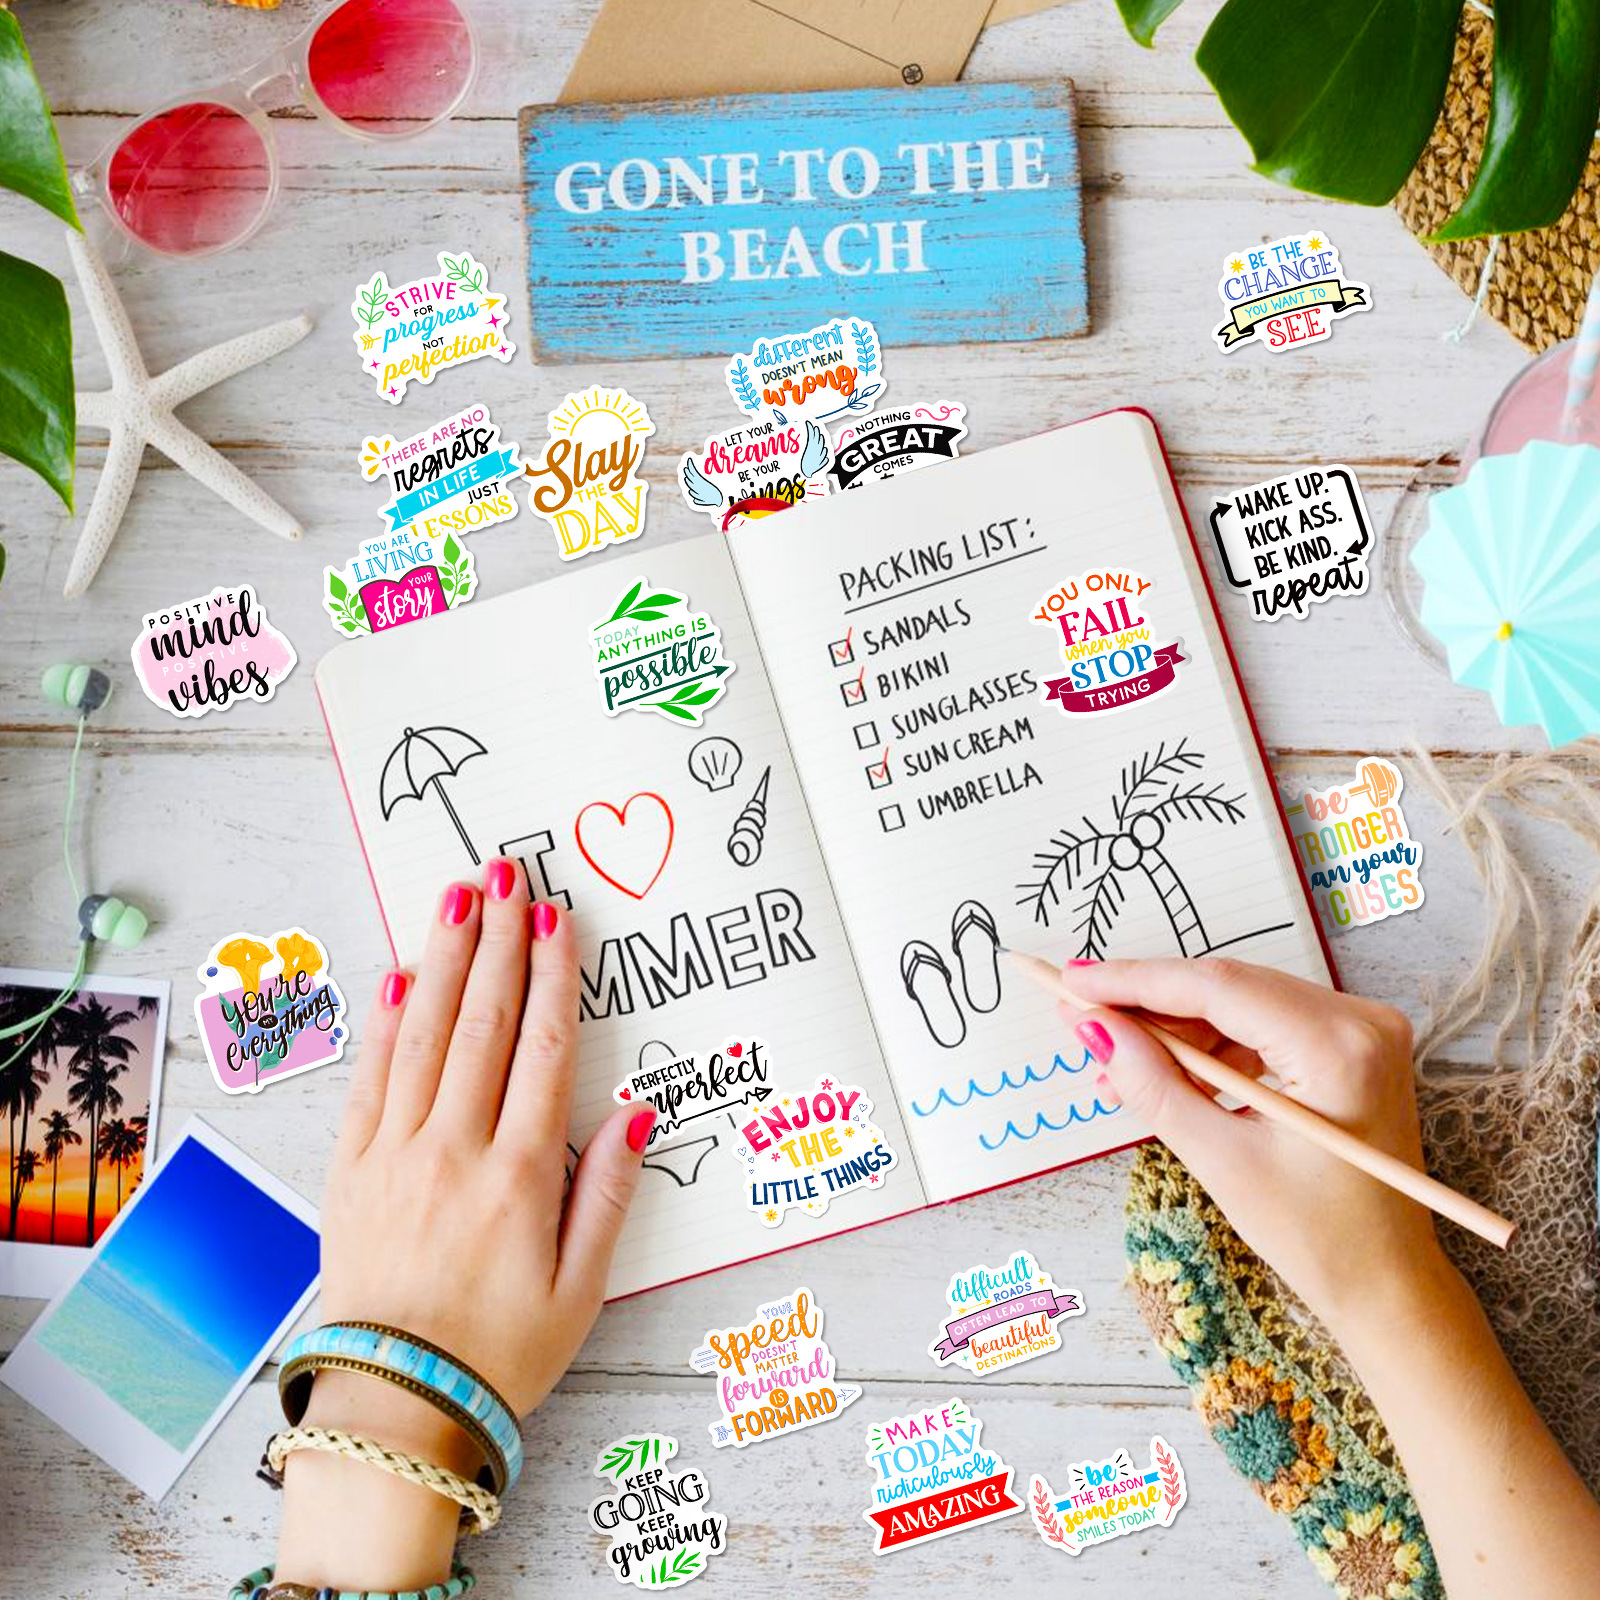 GONE TO THE
BEACH
STRIVE
FOR
progress
NOT
perfection
BE THE
CHANGE
YOU WANT TO
SEE
different
DOESN'T MEAN
wrong
THERE ARE NO
regrets
IN LIFE
JUST
LESSONS
Slay
THE
DAY
LET YOUR
dreams
BE YOUR
wings
NOTHING
GREAT
COMES
WAKE UP.
KICK ASS.
BE KIND.
repeat
YOU ARE
LIVING
YOUR
story
POSITIVE
mind
POSITIVE
vibes
TODAY
ANYTHING IS
possible
PACKING LIST:
SANDALS
BIKINI
SUNGLASSES
SUN CREAM
UMBRELLA
YOU ONLY
FAIL
when you
STOP
TRYING
I
MMER
be
TRONGER
an your
XCUSES
you're
my
everything
PERFECTLY
mperfect
ENJOY
THE
LITTLE THINGS
YOUR
speed
DOESN'T
MATTER
forward
IS
FORWARD
difficult
ROADS
OFTEN LEAD TO
beautiful
DESTINATIONS
KEEP
GOING
KEEP
growing
MAKE
TODAY
ridiculously
AMAZING
be
THE REASON
someone
SMILES TODAY